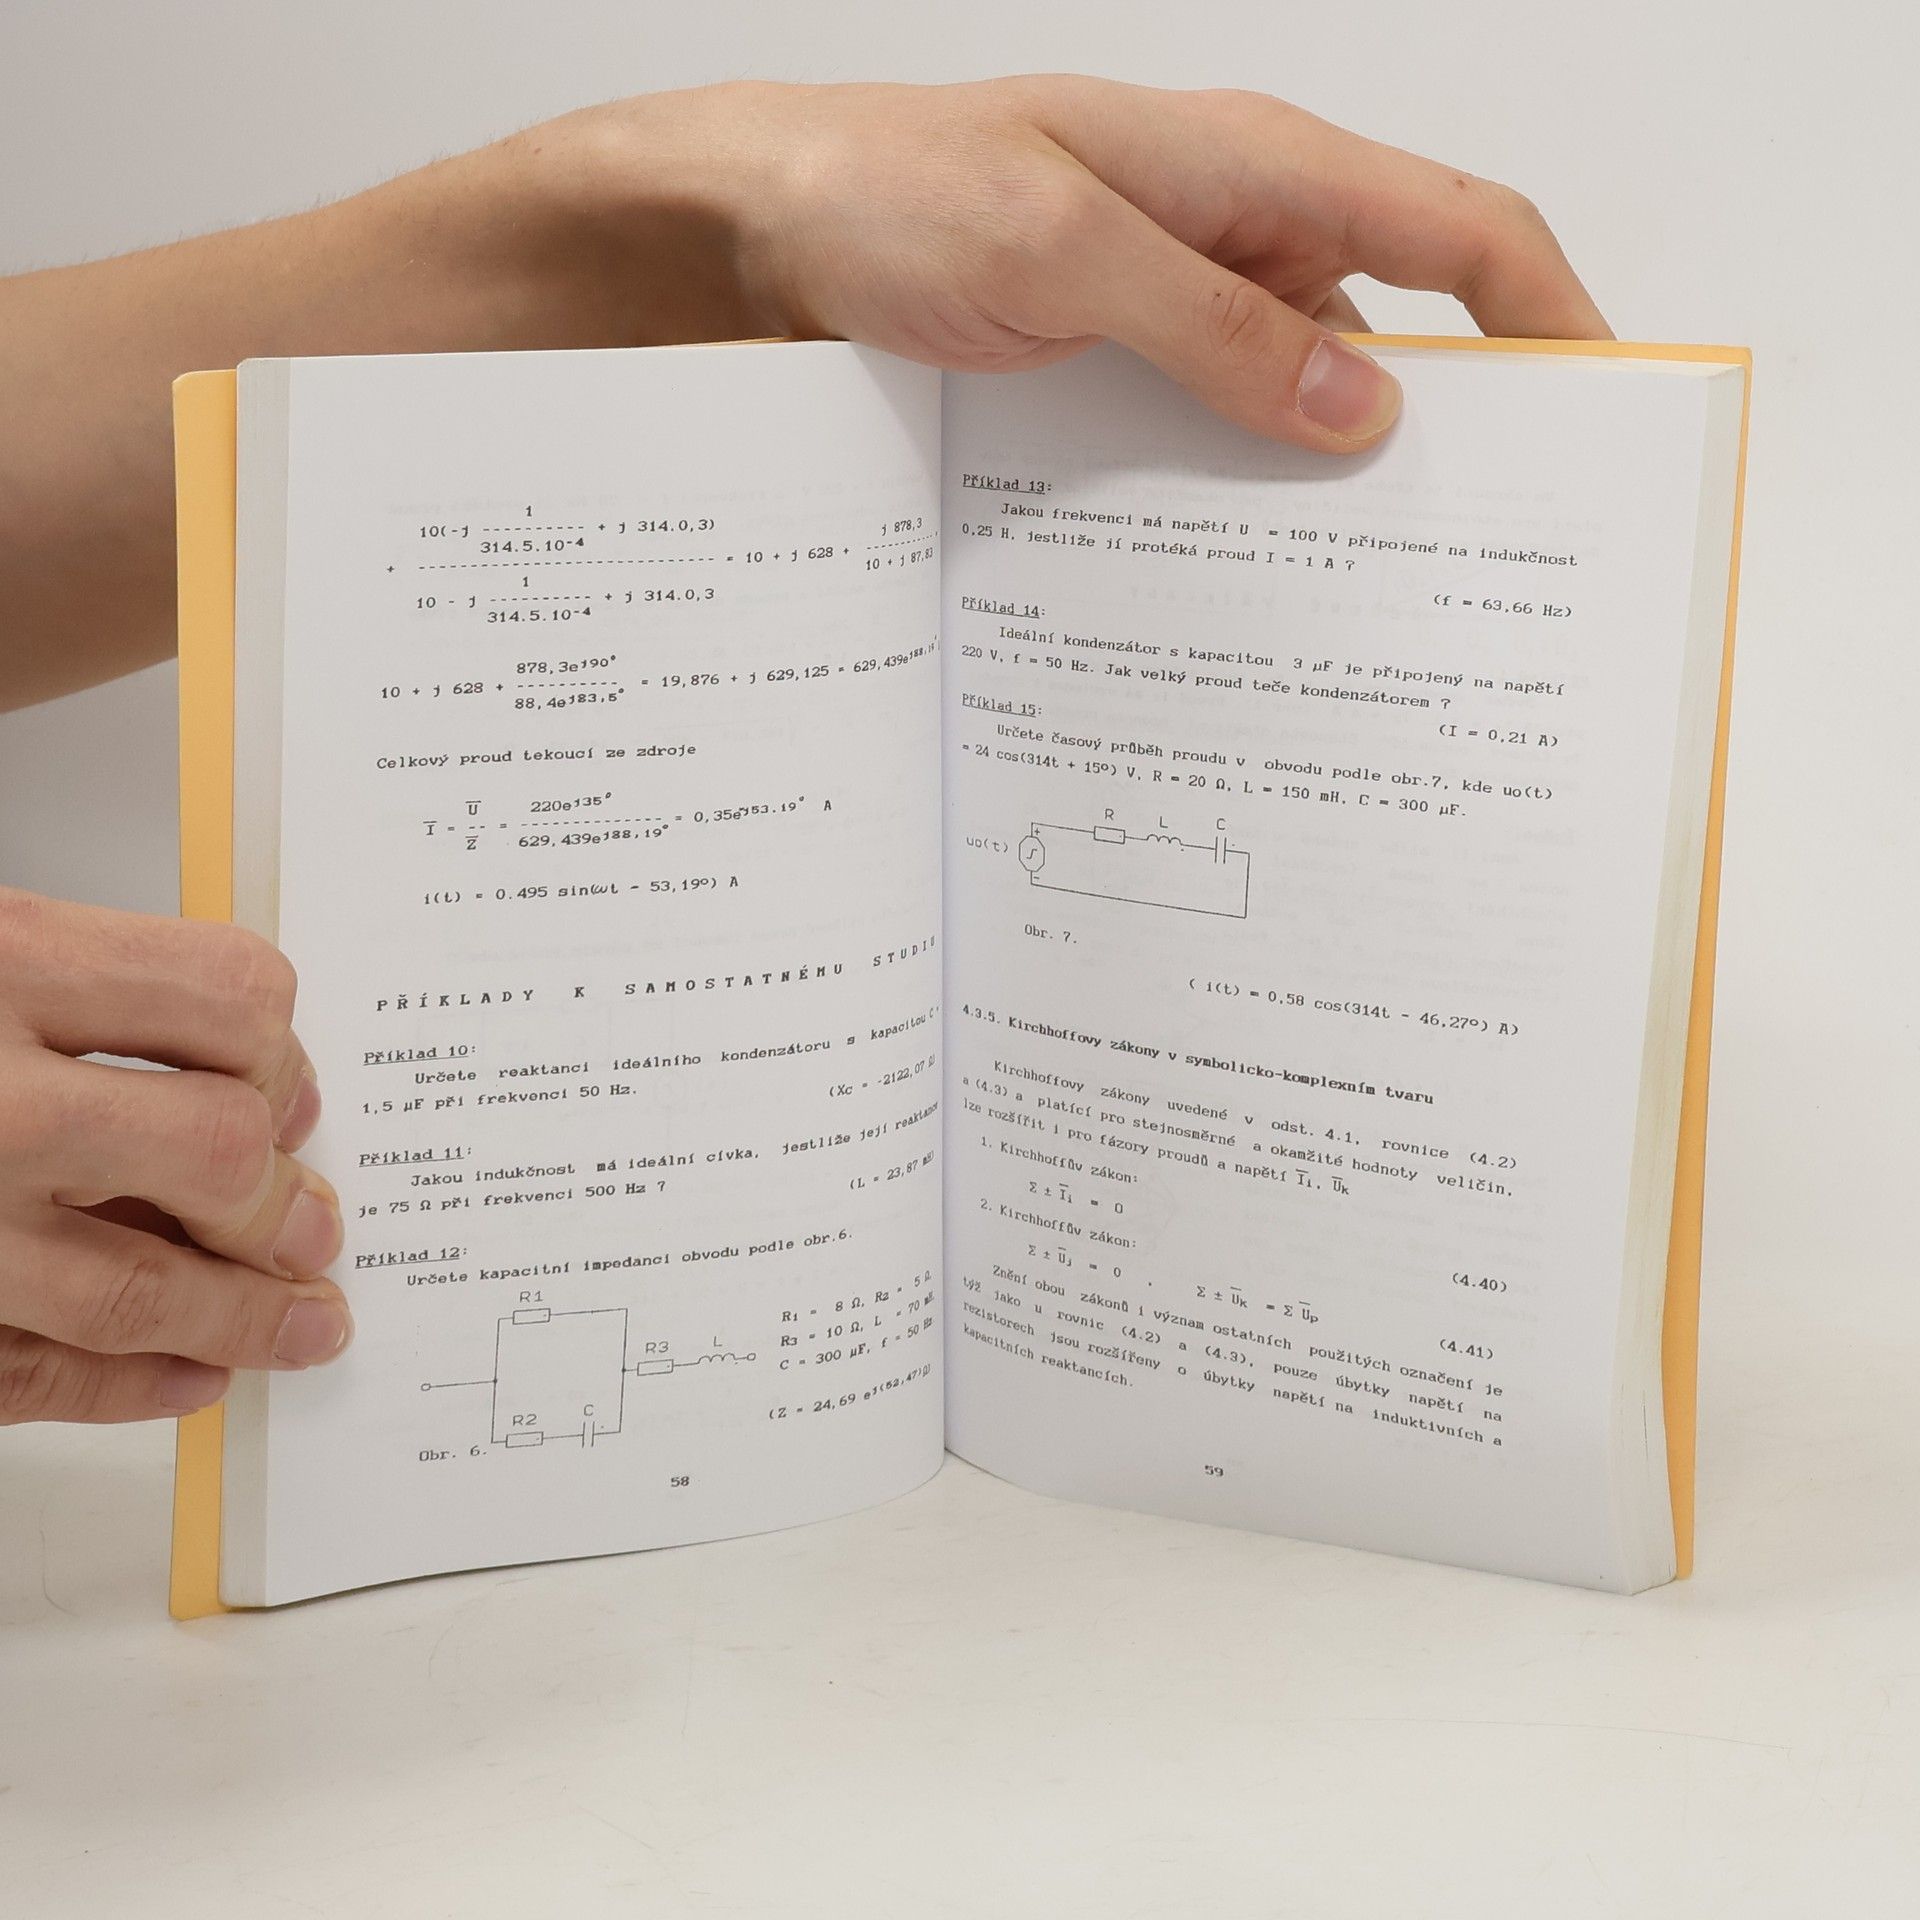 1
10(-j ---------- + j 314.0,3)
314.5.10-4
j 878,3
+ ------------------------------ = 10 + j 628 + ----------
10 + j 87,83
1
10 - j ---------- + j 314.0,3
314.5.10-4
878,3ej90°
10 + j 628 + ---------- = 19,876 + j 629,125 = 629,439ej88,19°
88,4ej83,5°
Celkový proud tekoucí ze zdroje
U 220ej35°
I = -- = -------------- = 0,35e-j53.19° A
Z 629,439ej88,19°
i(t) = 0.495 sin(ωt - 53,19º) A
PŘÍKLADY K SAMOSTATNÉMU STUDIU
Příklad 10:
Určete reaktanci ideálního kondenzátoru s kapacitou C =
1,5 µF při frekvenci 50 Hz.
(Xc = -2122,07 Ω)
Příklad 11:
Jakou indukčnost má ideální cívka, jestliže její reaktance
je 75 Ω při frekvenci 500 Hz ?
(L = 23,87 mH)
Příklad 12:
Určete kapacitní impedanci obvodu podle obr.6.
R1
R3
L
R2
C
R1 = 8 Ω, R2 = 5 Ω,
R3 = 10 Ω, L = 70 mH,
C = 300 µF, f = 50 Hz
(Z = 24,69 ej(52,47)Ω)
Obr. 6.
58
Příklad 13:
Jakou frekvenci má napětí U = 100 V připojené na indukčnost
0,25 H, jestliže jí protéká proud I = 1 A ?
(f = 63,66 Hz)
Příklad 14:
Ideální kondenzátor s kapacitou 3 µF je připojený na napětí
220 V, f = 50 Hz. Jak velký proud teče kondenzátorem ?
(I = 0,21 A)
Příklad 15:
Určete časový průběh proudu v obvodu podle obr.7, kde uo(t)
= 24 cos(314t + 15º) V, R = 20 Ω, L = 150 mH, C = 300 µF.
R
L
C
uo(t)
+
-
Obr. 7.
( i(t) = 0,58 cos(314t - 46,27º) A)
4.3.5. Kirchhoffovy zákony v symbolicko-komplexním tvaru
Kirchhoffovy zákony uvedené v odst. 4.1, rovnice (4.2)
a (4.3) a platící pro stejnosměrné a okamžité hodnoty veličin,
lze rozšířit i pro fázory proudů a napětí Ii, Uk
1. Kirchhoffův zákon:
Σ ± Ii = 0
(4.40)
2. Kirchhoffův zákon:
Σ ± Uj = 0 , Σ ± Uk = Σ Up
(4.41)
Znění obou zákonů i význam ostatních použitých označení je
týž jako u rovnic (4.2) a (4.3), pouze úbytky napětí na
rezistorech jsou rozšířeny o úbytky napětí na induktivních a
kapacitních reaktancích.
59